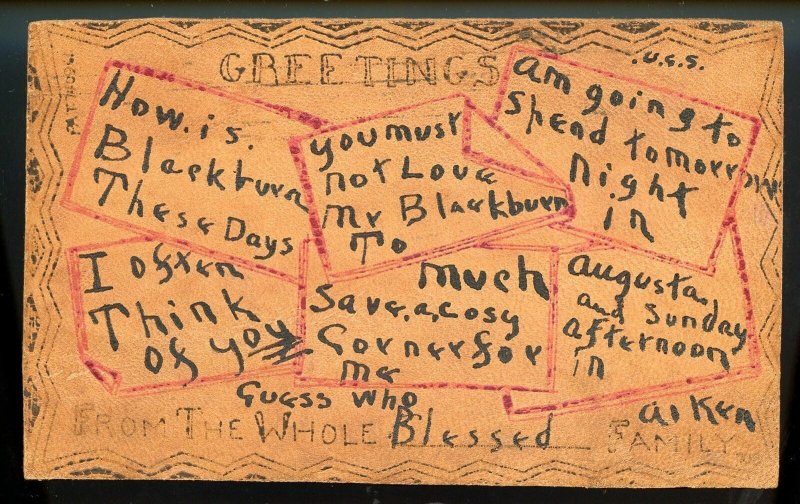 GREETINGS
.U.S.S.
How. is.
Blackburn
These Days
you must
not Love
Mr Blackburn
To
much
am going to
spend tomorrow
night
in
augusta,
and sunday
afternoon
in
aiken
I often
Think
of you
Save. a. cosy
Corner for
me
Guess who
FROM THE WHOLE Blessed FAMILY